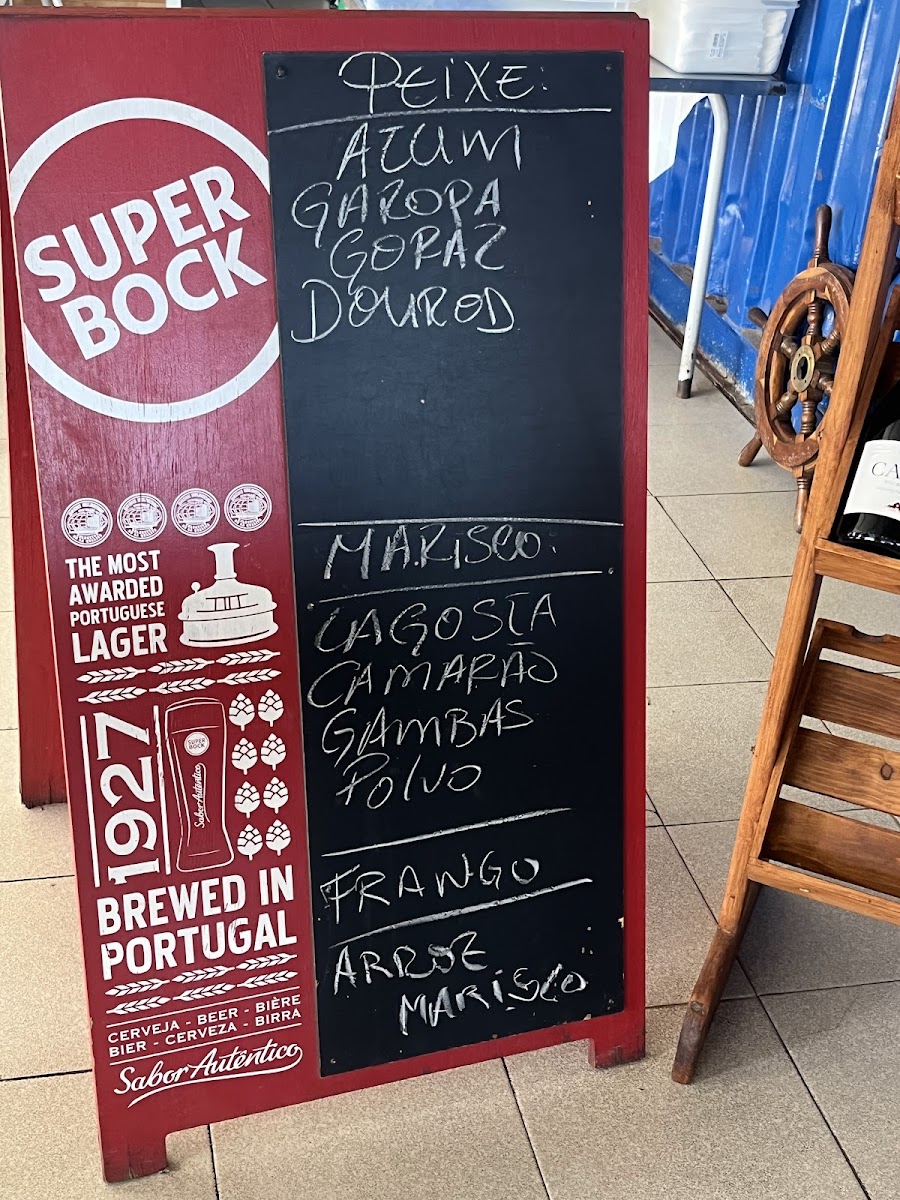 SUPER
BOCK
THE MOST
AWARDED
PORTUGUESE
LAGER
1927
SUPER
BOCK
Sabor Autêntico
BREWED IN
PORTUGAL
CERVEJA - BEER - BIÈRE
BIER - CERVEZA - BIRRA
Sabor Autêntico
PEIXE:
ATUM
GAROPA
GORAZ
DOURAD
MARISCO:
LAGOSTA
CAMARÃO
GAMBAS
POLVO
FRANGO
ARROZ
MARISCO
CA